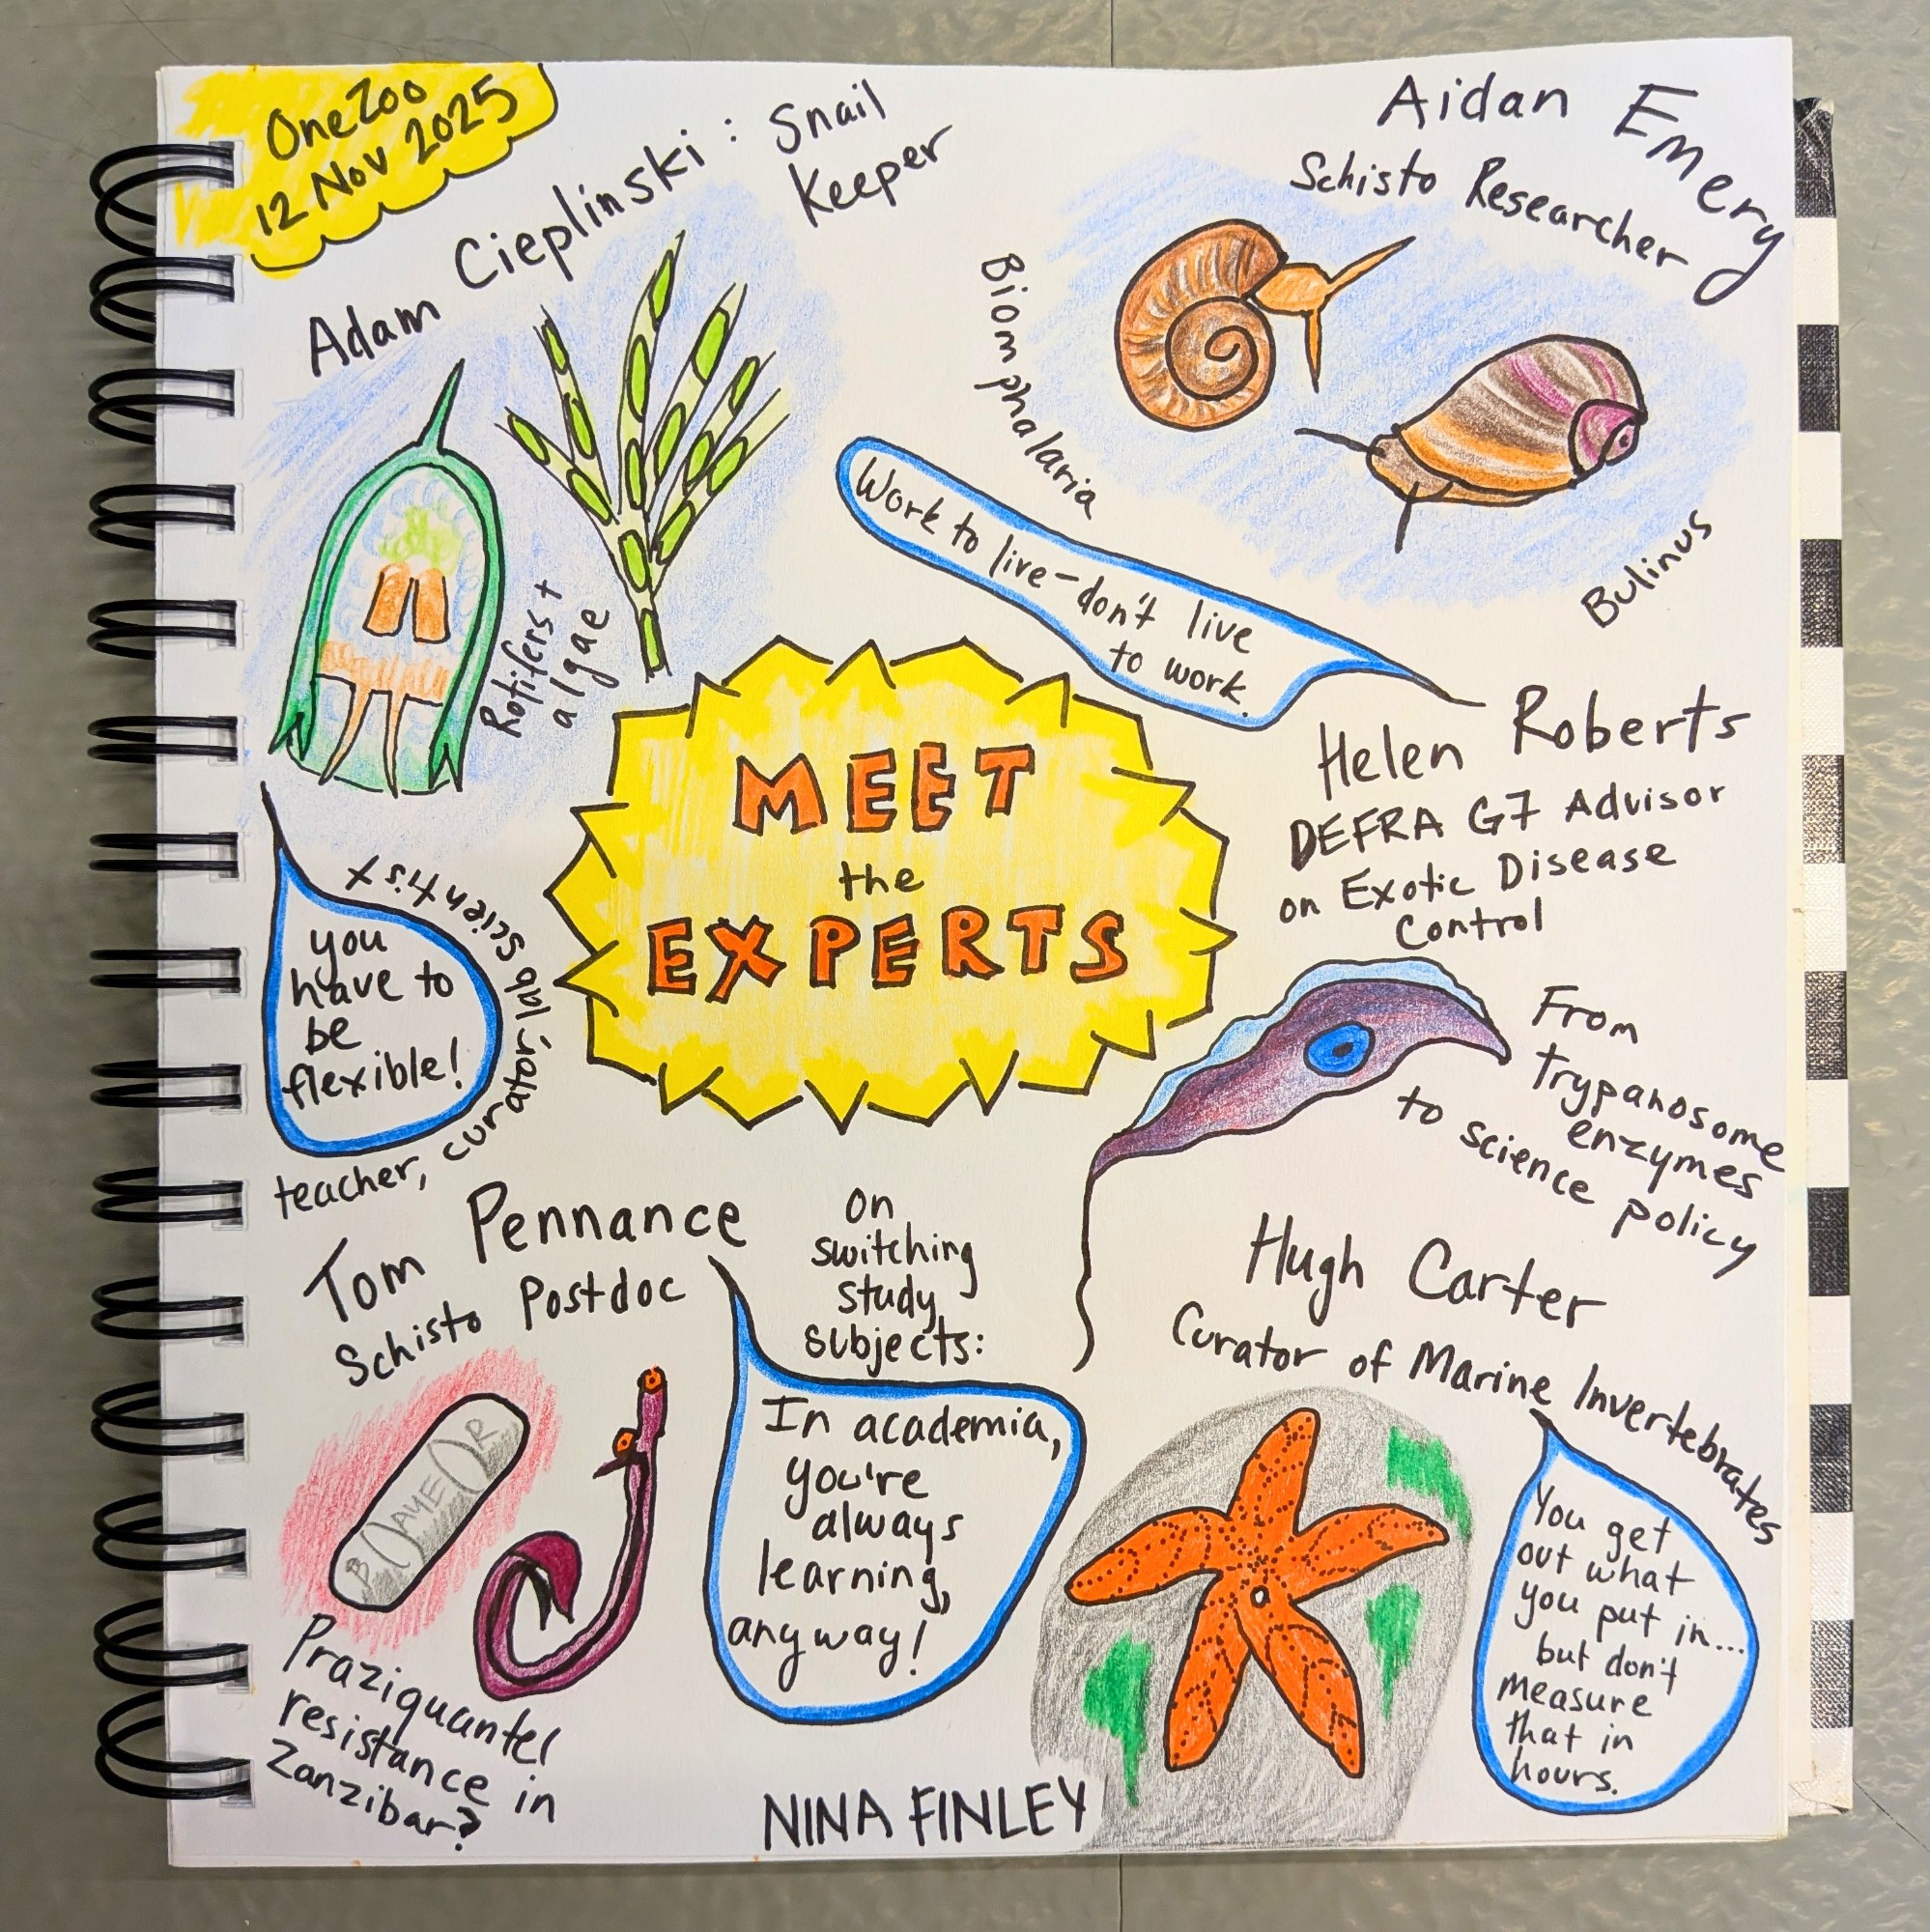 OneZoo
12 Nov 2025
Adam Cieplinski: Snail
Keeper
Rotifers +
algae
you
have to
be
flexible!
teacher, curator, lab scientist
Aidan Emery
Schisto Researcher
Biomphalaria
Bulinus
Work to live - don't live
to work.
MEET
the
EXPERTS
Helen Roberts
DEFRA G7 Advisor
on Exotic Disease
Control
From
trypanosome
enzymes
to science policy
Tom Pennance
Schisto Postdoc
BAYER
BAYER
Praziquantel
resistance in
Zanzibar?
on
switching
study
subjects:
In academia,
you're
always
learning,
anyway!
Hugh Carter
Curator of Marine Invertebrates
You get
out what
you put in...
but don't
measure
that in
hours.
NINA FINLEY